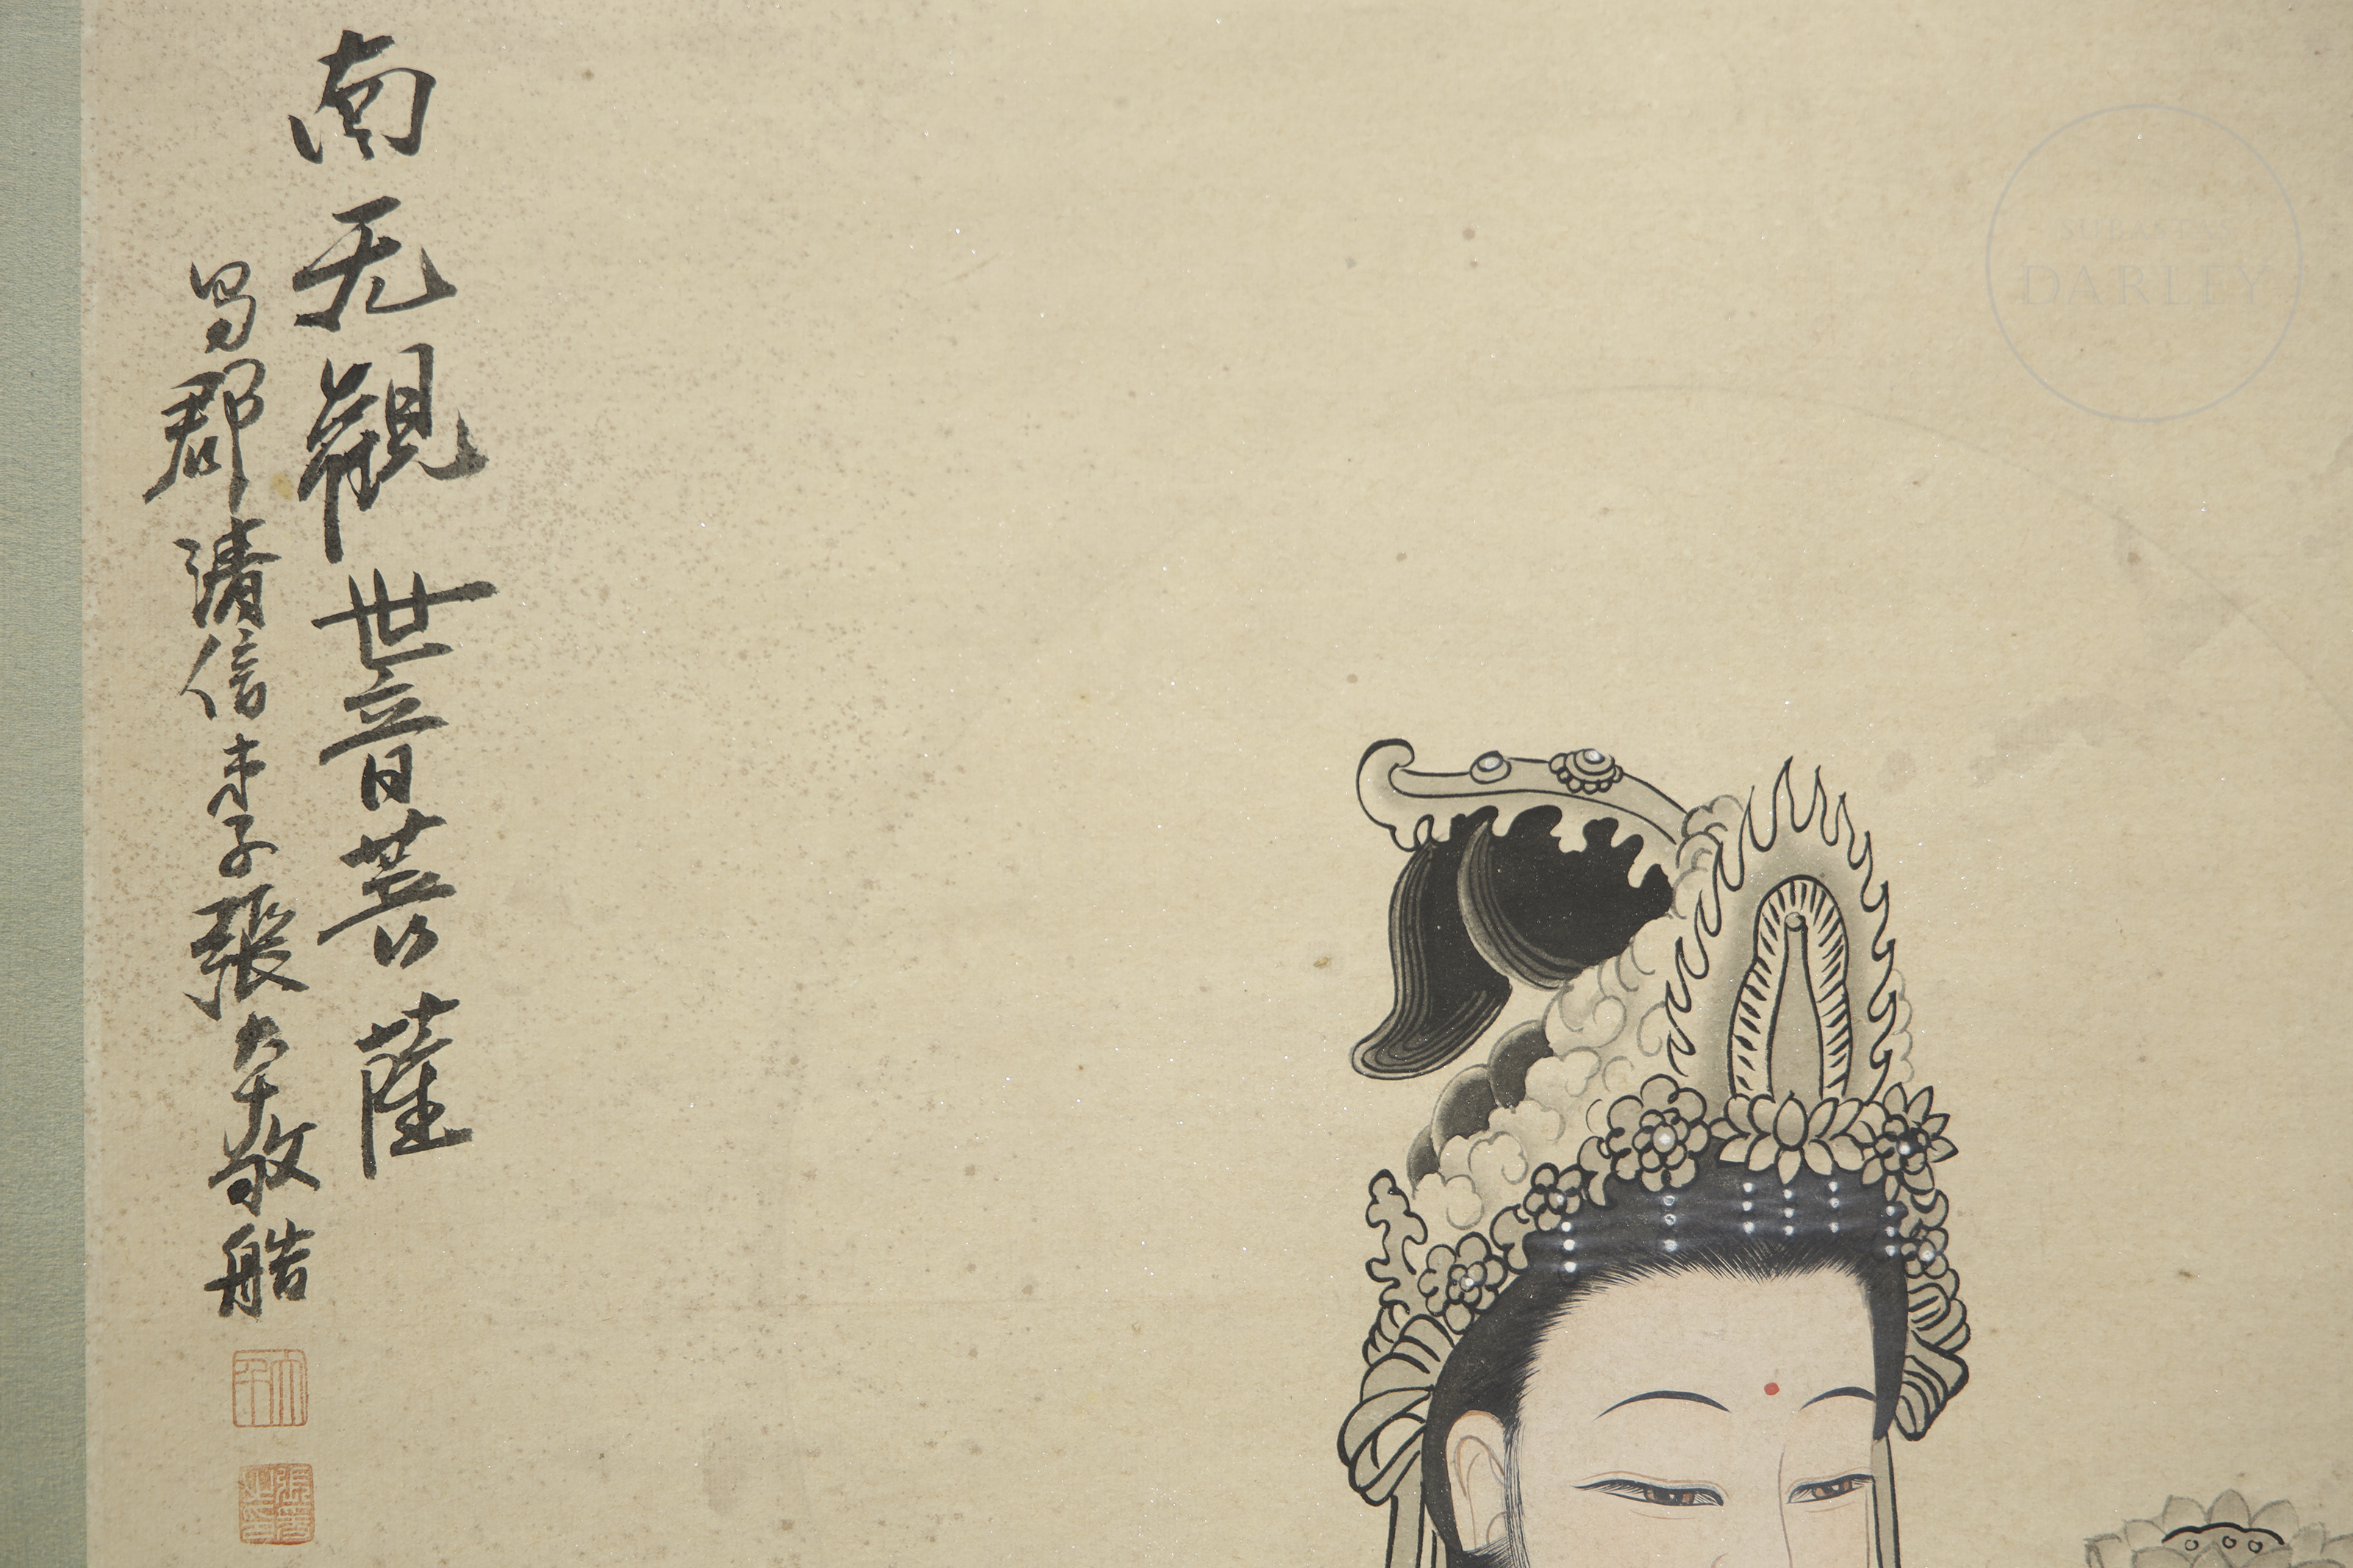 南无觀世音菩薩
蜀郡清信弟子張大千敬艁
大千
張爰之印
SUBASTAS
DARLEY